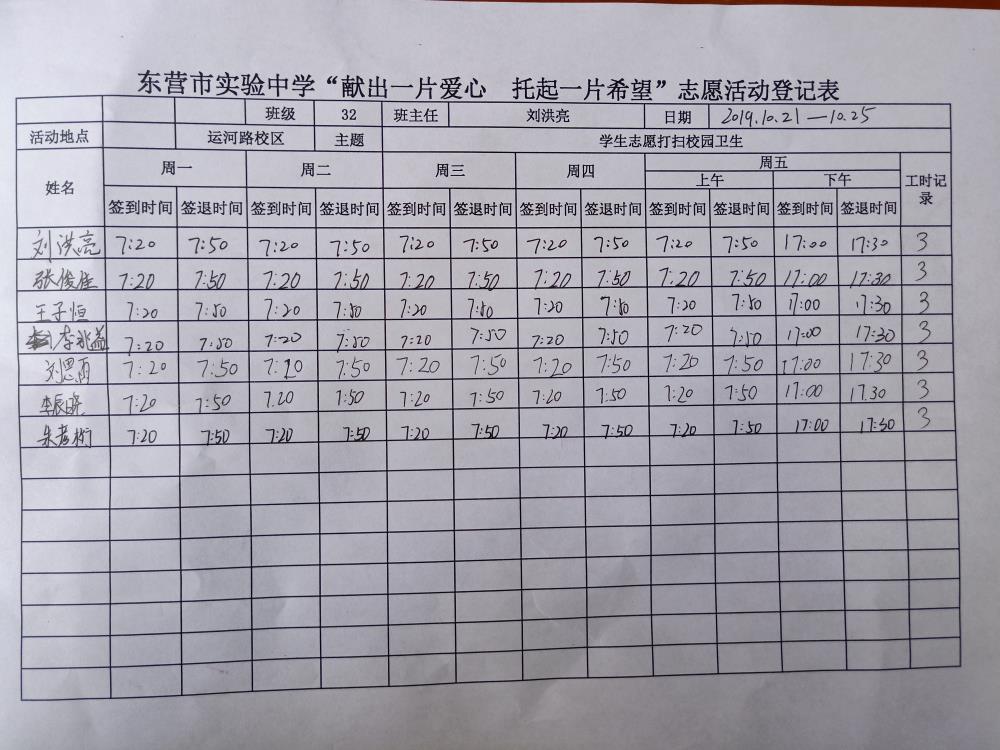 东营市实验中学“献出一片爱心 托起一片希望”志愿活动登记表
班级 32 班主任 刘洪亮 日期 2019.10.21—10.25
活动地点 运河路校区 主题 学生志愿打扫校园卫生
姓名 周一 周二 周三 周四 周五 工时记录
上午 下午
签到时间 签退时间 签到时间 签退时间 签到时间 签退时间 签到时间 签退时间 签到时间 签退时间 签到时间 签退时间
刘洪亮 7:20 7:50 7:20 7:50 7:20 7:50 7:20 7:50 7:20 7:50 17:00 17:30 3
张俊佳 7:20 7:50 7:20 7:50 7:20 7:50 7:20 7:50 7:20 7:50 17:00 17:30 3
王子恒 7:20 7:50 7:20 7:50 7:20 7:50 7:20 7:50 7:20 7:50 17:00 17:30 3
李兆益 7:20 7:50 7:20 7:50 7:20 7:50 7:20 7:50 7:20 7:50 17:00 17:30 3
刘思雨 7:20 7:50 7:20 7:50 7:20 7:50 7:20 7:50 7:20 7:50 17:00 17:30 3
李辰晓 7:20 7:50 7.20 7:50 7:20 7:50 7:20 7:50 7:20 7:50 17:00 17.30 3
7:20 7:50 7:20 7:50 7:20 7:50 7:20 7:50 7:20 7:50 17:00 17:30 3